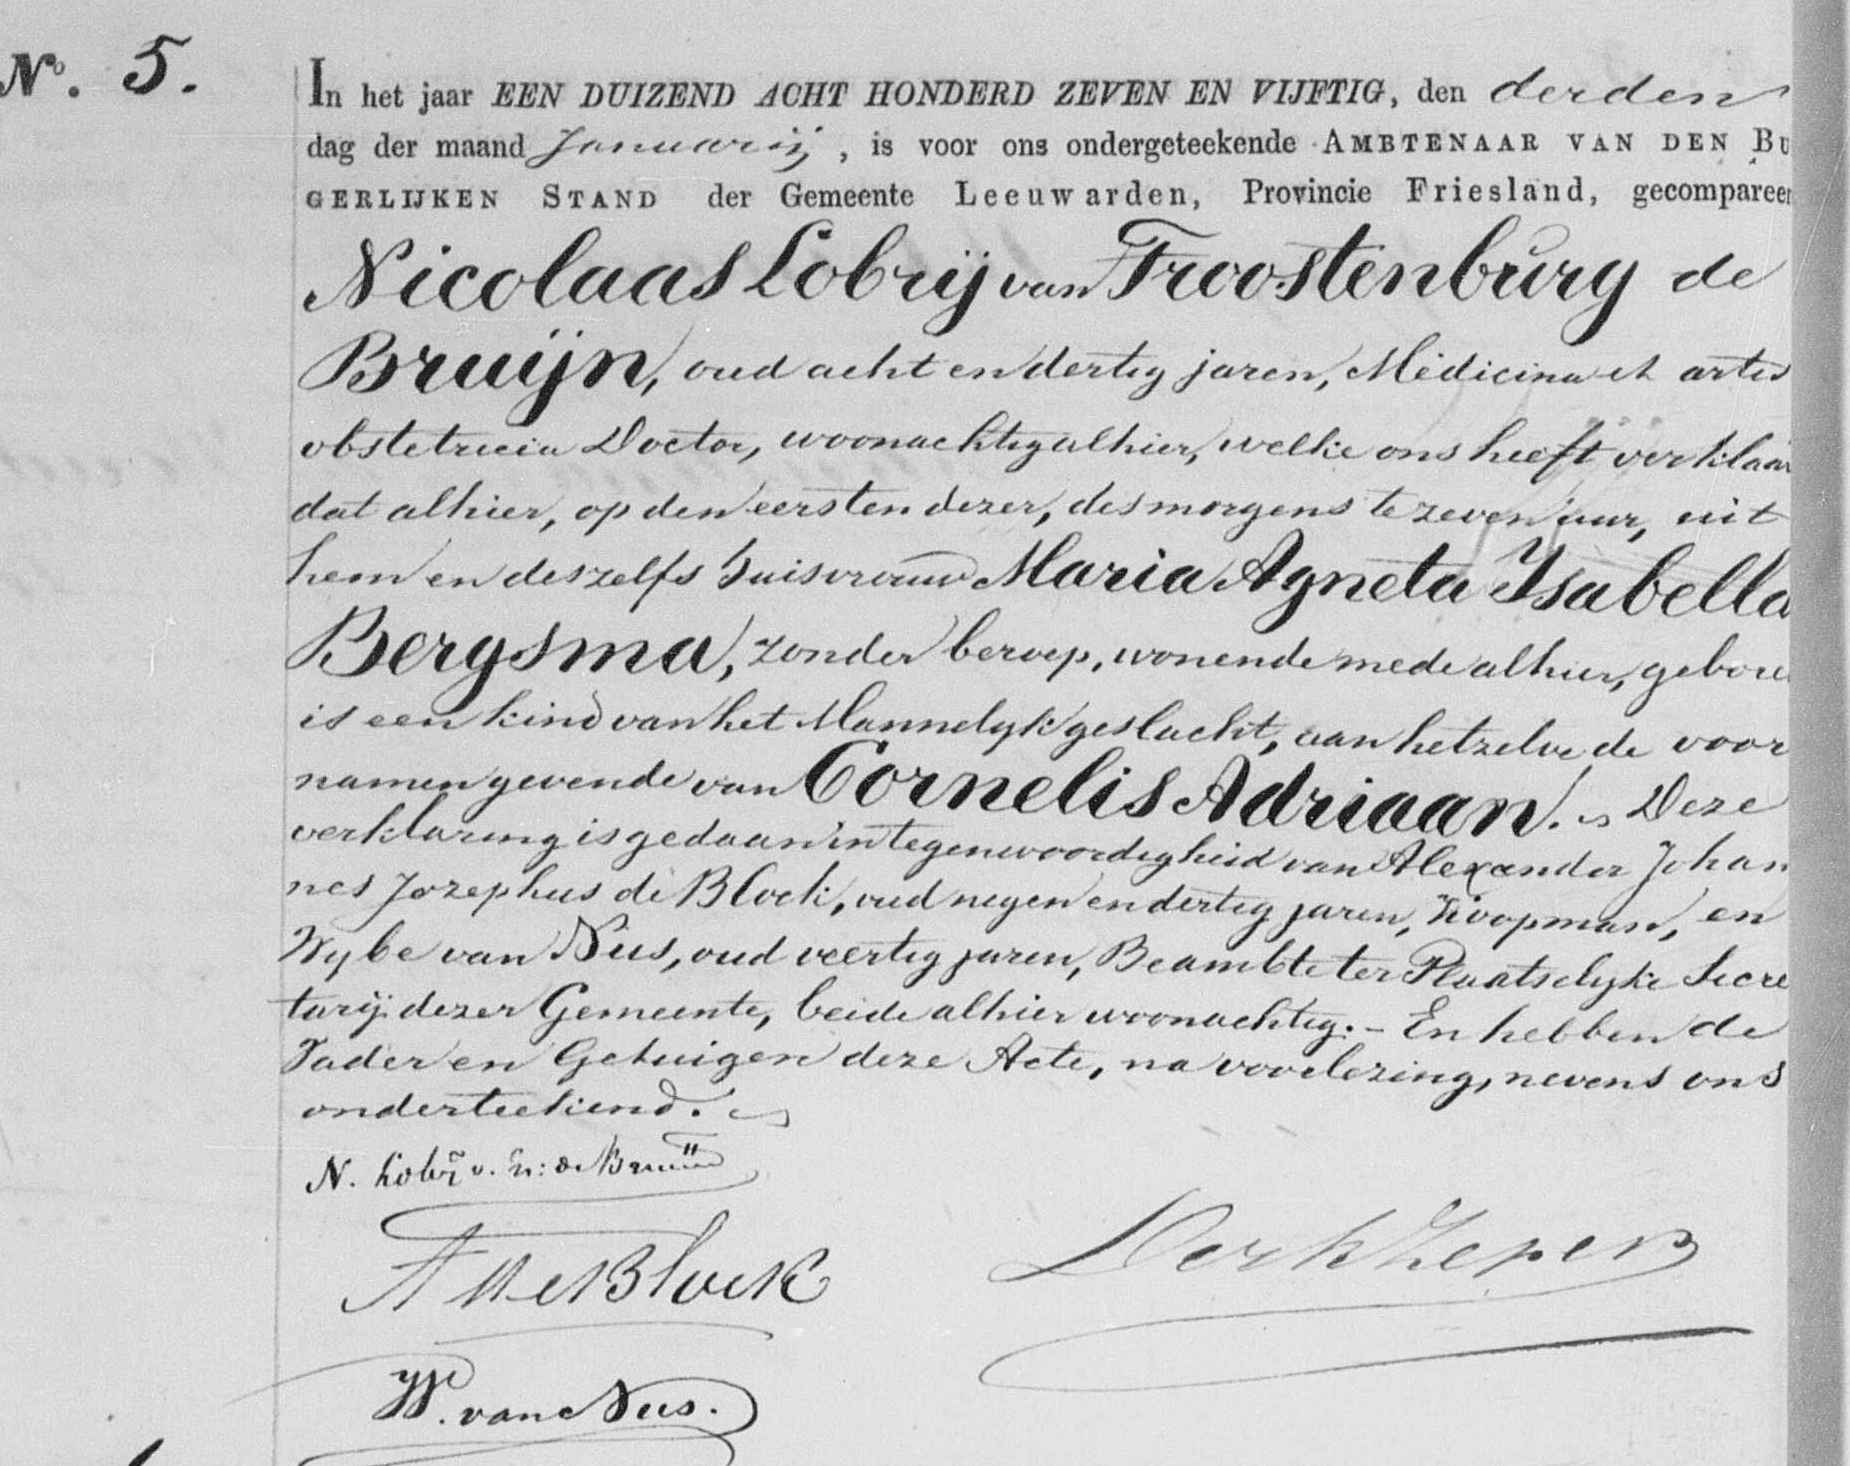 No. 5.
In het jaar EEN DUIZEND ACHT HONDERD ZEVEN EN VIJFTIG, den derden
dag der maand Januarij, is voor ons ondergeteekende AMBTENAAR VAN DEN BU
GERLIJKEN STAND der Gemeente Leeuwarden, Provincie Friesland, gecomparee
Nicolaas Lobrij van Troostenburg de
Bruijn, oud acht en dertig jaren, Medicina et artis
obstetricia Doctor, woonachtig alhier, welke ons heeft verklaar
dat alhier, op den eersten dezer, des morgens te zeven uur, uit
hem en deszelfs huisvrouw Maria Agneta Ysabella
Bergsma, zonder beroep, wonende mede alhier, gebore
is een kind van het Mannelyk geslacht, aan hetzelve de voor
namen gevende van Cornelis Adriaan. Deze
verklaring is gedaan in tegenwoordigheid van Alexander Johan
nes Jozephus de Block, oud negen en dertig jaren, Koopman, en
Wybe van Nus, oud veertig jaren, Beambte ter Plaatselyke Secre
tarij dezer Gemeente, beide alhier woonachtig. – En hebben de
Vader en Getuigen deze Acte, na voorlezing, nevens ons
onderteekend.
N. Lobrij v. Tr: de Bruijn
A de Block
Dirk Zeper
W. van Nus.